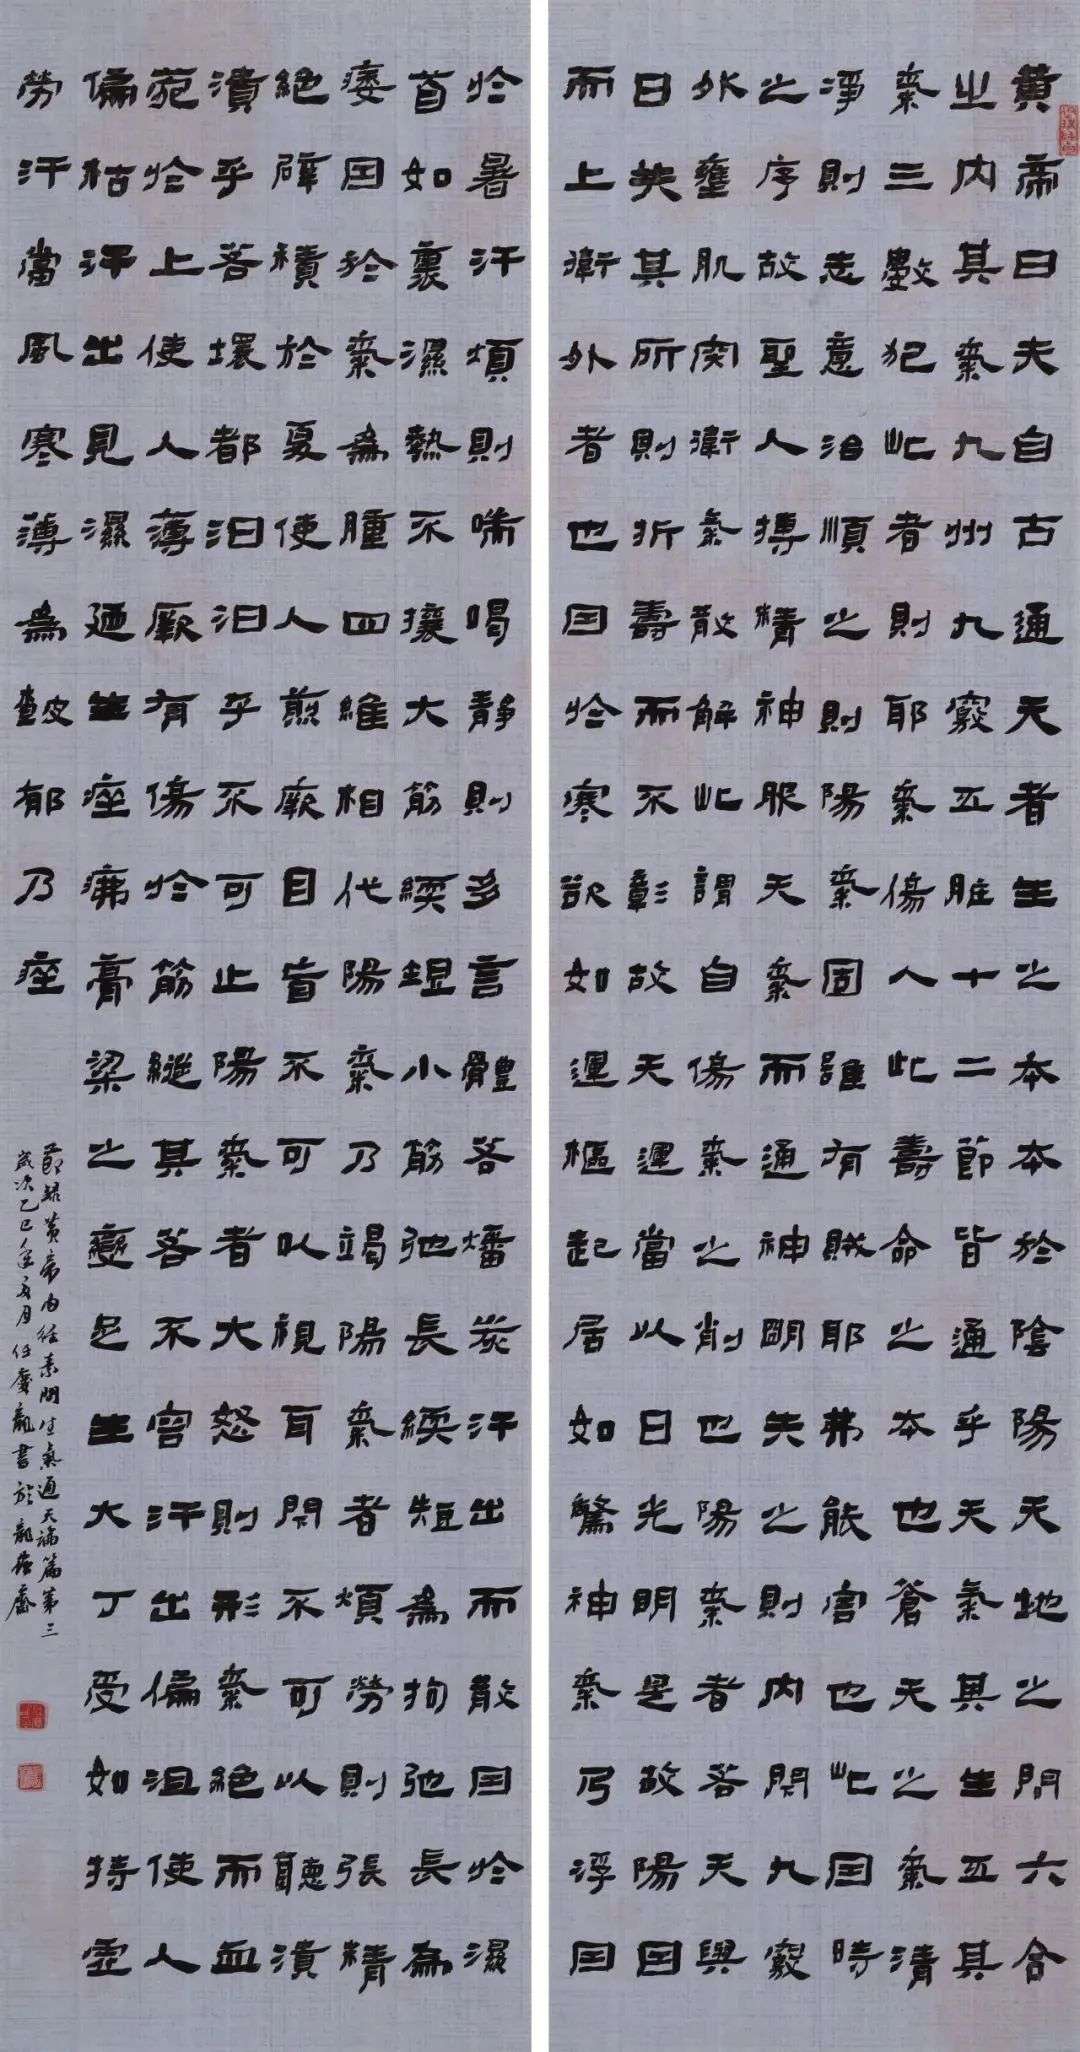 黄帝曰夫自古通天者生之本本於陰陽天地之間六合
之内其氣九州九竅五脏十二節皆通乎天氣其生五其
氣三數犯此者則耶氣傷人此壽命之本也蒼天之氣清
淨則志意治順之則陽氣固雖有賊耶弗能害也此因時
之序故聖人摶精神服天氣而通神明失之則内閉九竅
外壅肌肉衛氣散解此謂自傷氣之削也陽氣者若天與
日失其所則折壽而不彰故天運當以日光明是故陽因
而上衛外者也因於寒欲如運樞起居如驚神氣乃浮因
於暑汗煩則喘喝静則多言體若燔炭汗出而散因於濕
首如裹濕熱不攘大筋緛短小筋弛長緛短為拘弛長為
痿因於氣為腫四維相代陽氣乃竭陽氣者煩勞則張精
絶辟積於夏使人煎厥目盲不可以視耳閉不可以聽潰
潰乎若壞都汩汩乎不可止陽氣者大怒則形氣絶而血
菀於上使人薄厥有傷於筋縱其若不容汗出偏沮使人
偏枯汗出見濕廼生痤疿膏梁之變足生大丁受如持虚
勞汗當風寒薄為皶郁乃痤
節録黄帝内经素問生氣通天論篇第三
歲次乙巳年五月任慶龍書於龍居齋